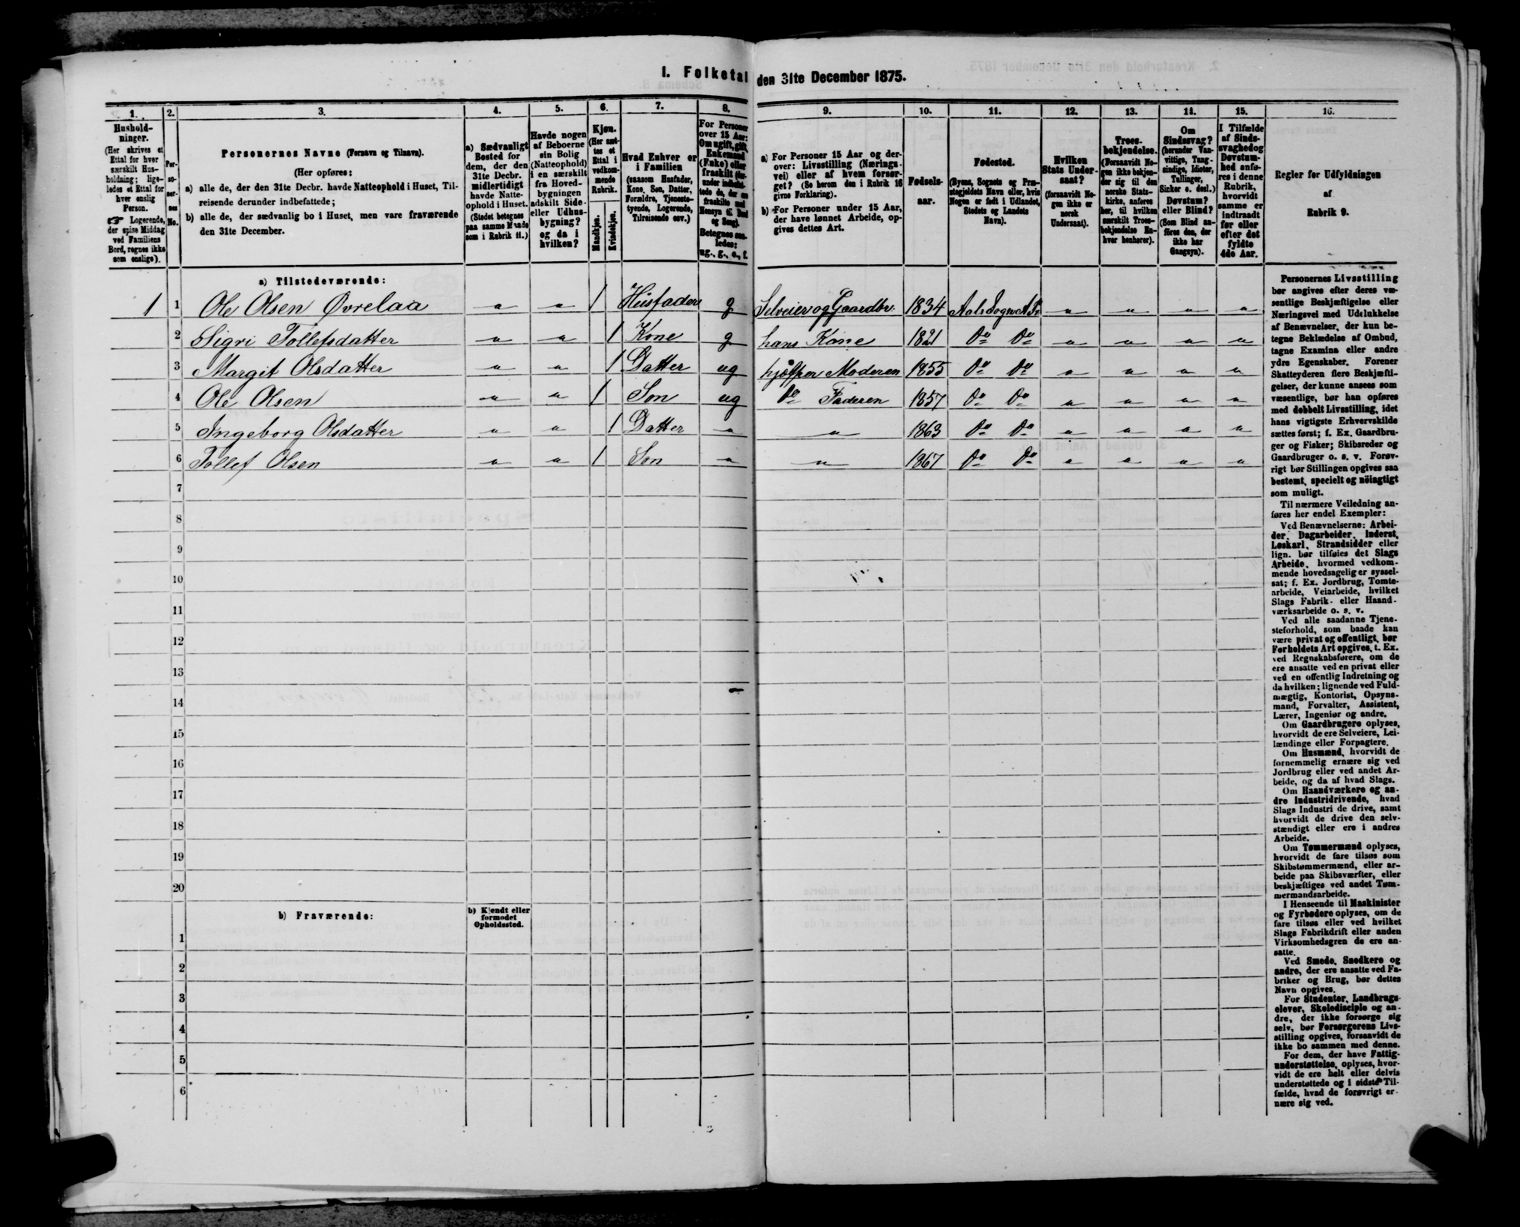 I. Folketal den 31te December 1875.
1. 2. 3. 4. 5. 6. 7. 8. 9. 10. 11. 12. 13. 14. 15. 16.
Hushold-
ninger.
(Her skrives et
Ettal for hver
særskilt Hus-
holdning; lige-
ledes et Ettal for
hver enslig
Person.
☞ Logerende,
der spise Middag
ved Familiens
Bord, regnes ikke
som enslige).
Per-
so-
ner-
nes
No.
Personernes Navne (Fornavn og Tilnavn).
(Her opføres:
a) alle de, der den 31te Decbr. havde Natteophold i Huset, Til-
reisende derunder indbefattede;
b) alle de, der sædvanlig bo i Huset, men vare fraværende
den 31te December.
a) Sædvanligt
Bosted for
dem, der den
31te Decbr.
midlertidigt
havde Natte-
ophold i Huset.
(Stedet betegnes
paa samme Maade
som i Rubrik 11.)
Havde nogen
af Beboerne
sin Bolig
(Natteophold)
i en særskilt
fra Hoved-
bygningen
adskilt Side-
eller Udhus-
bygning?
og da i
hvilken?
Kjøn.
(Her sæt-
tes et
Ettal i
vedkom-
mende
Rubrik.
Mandkjøn.
Kvindekjøn.
Hvad Enhver er
i Familien
(saasom Husfader,
Kone, Søn, Datter,
Forældre, Tjeneste-
tyende, Logerende,
Tilreisende osv.)
For Personer
over 15 Aar:
Om ugift, gift,
Enkemand
(Enke) eller
fraskilt
Betegnes saa-
ledes:
ug., g., e., f.
a) For Personer 15 Aar og der-
over: Livsstilling (Nærings-
vei) eller af hvem forsør-
get? (Se herom den i Rubrik 16
givne Forklaring).
b) For Personer under 15 Aar,
der have lønnet Arbeide, op-
gives dettes Art.
Fødsels-
aar.
Fødested.
(Byens, Sognets og Præ-
stegjeldets Navn eller, hvis
Nogen er født i Udlandet,
Stedets og Landets
Navn).
Hvilken
Stats Under-
saat?
(forsaavidt No-
gen ikke er
norsk
Undersaat).
Troes-
bekjendelse.
(Forsaavidt No-
gen ikke bekjen-
der sig til den
norske Stats-
kirke, anføres
her, til hvilken
særskilt Troes-
bekjendelse En-
hver henhører).
Om
Sindssvag?
(herunder Van-
vittige, Tung-
sindige, Idioter,
Tullinger,
Sinker o. desl.)
Døvstum?
eller Blind?
(Som Blind an-
føres den, der
ikke har
Gangsyn).
I Tilfælde
af Sinds-
svaghed og
Døvstum-
hed anfø-
res i denne
Rubrik,
hvorvidt
samme er
indtraadt
før eller
efter det
fyldte
4de Aar.
Regler for Udfyldningen
af
Rubrik 9.
a) Tilstedeværende:
1 1 Ole Olsen Øvrelaa " " 1 Husfader g Selveier og Gaardbr. 1834 " " " "
2 Sigri Tollefsdatter " " 1 Kone g hans Kone 1821 do do " " " "
3 Margit Olsdatter " " 1 Datter ug hjælper Moderen 1855 do do " " " "
4 Ole Olsen " " 1 Søn ug do Faderen 1857 do do " " " "
5 Ingeborg Olsdatter " " 1 Datter " " 1863 do do " " " "
6 Tollef Olsen " " 1 Søn " " 1867 do do " " " "
7
8
9
10
11
12
13
14
15
16
17
18
19
20
b) Fraværende:
b) Kjendt eller
formodet
Opholdssted.
1
2
3
4
5
6
Personernes Livsstilling
bør angives efter deres væ-
sentlige Beskjæftigelse eller
Næringsvei med Udelukkelse
af Benævnelser, der kun be-
tegne Beklædelse af Ombud,
tagne Examina eller andre
ydre Egenskaber. Forener
Skatteyderen flere Beskjæfti-
gelser, der kunne ansees som
væsentlige, bør han opføres
med dobbelt Livsstilling, idet
hans vigtigste Erhvervskilde
sættes først; f. Ex. Gaardbru-
ger og Fisker; Skibsreder og
Gaardbruger o. s. v. Forøv-
rigt bør Stillingen opgives saa
bestemt, specielt og nöiagtigt
som muligt.
Til nærmere Veiledning an-
føres her endel Exempler:
Ved Benævnelserne: Arbei-
der, Dagarbeider, Inderst,
Løskarl, Strandsidder eller
lign. bør tilføies det Slags
Arbeide, hvormed vedkom-
mende hovedsagelig er syssel-
sat; f. Ex. Jordbrug, Tomte-
arbeide, Veiarbeide, hvilket
Slags Fabrik- eller Haand-
værksarbeide o. s. v.
Ved alle saadanne Tjene-
steforhold, som baade kan
være privat og offentligt, bør
Forholdets Art opgives, t. Ex.
ved Regnskabsførere, om de
ere ansatte ved en privat eller
ved en offentlig Indretning og
da hvilken; lignende ved Fuld-
mægtig, Kontorist, Opsyns-
mand, Forvalter, Assistent,
Lærer, Ingeniør og andre.
Om Gaardbrugere oplyses,
hvorvidt de ere Selveiere, Lei-
lændinge eller Forpagtere.
Om Husmænd, hvorvidt de
fornemmelig ernære sig ved
Jordbrug eller ved andet Ar-
beide, og da af hvad Slags.
Om Haandværkere og an-
dre Industridrivende, hvad
Slags Industri de drive, samt
hvorvidt de drive den selv-
stændigt eller ere i andres
Arbeide.
Om Tømmermænd oplyses,
hvorvidt de fare tilsøs som
Skibstømmermænd, eller ar-
beide paa Skibsværfter, eller
beskjæftiges ved andet Tøm-
mermandsarbeide.
I Henseende til Maskinister
og Fyrbødere oplyses, om de
fare tilsøs eller ved hvilket
Slags Fabrikdrift eller anden
Virksomhedsgren de ere an-
satte.
Ved Smede, Snedkere og
andre, der ere ansatte ved Fa-
briker og Brug, bør dettes
Navn opgives.
For Studenter, Landbrugs-
elever, Skoledisciple og an-
dre, der ikke forsørge sig
selv, bør Forsørgerens Livs-
stilling opgives, forsaavidt de
ikke bo sammen med denne.
For dem, der have Fattig-
understøttelse, oplyses, hvor-
vidt de ere helt eller delvis
understøttede og i sidste Til-
fælde, hvad de forøvrigt er-
nære sig ved.